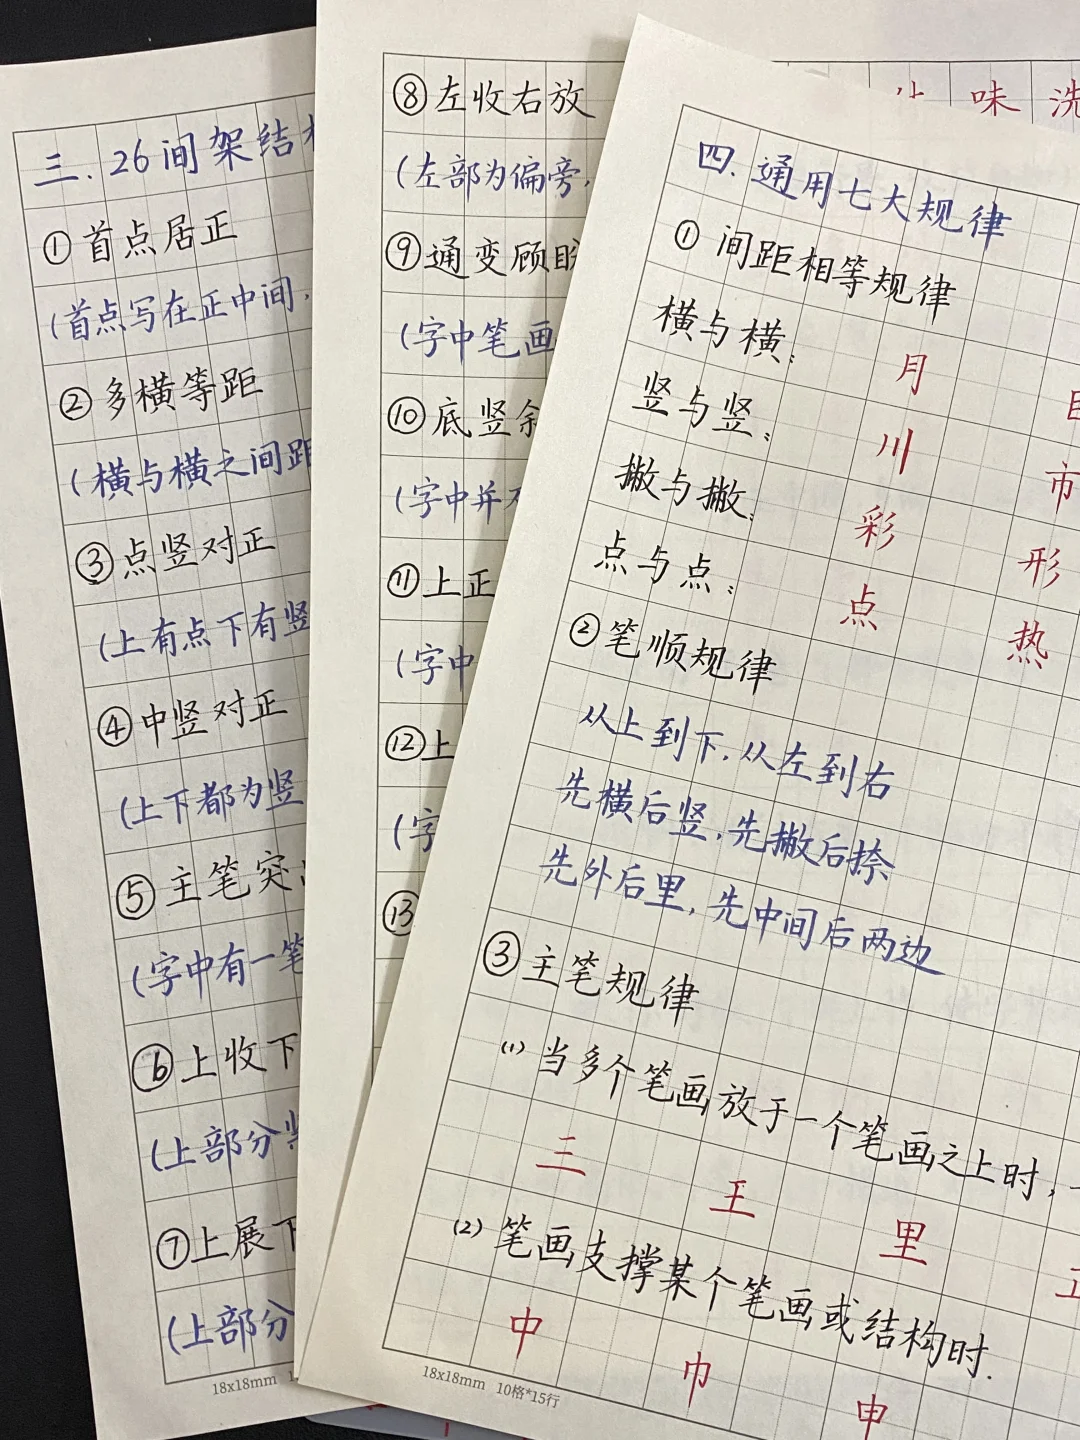 三.26间架结
①首点居正
(首点写在正中间,
②多横等距
(横与横之间距
③点竖对正
(上有点下有竖
④中竖对正
(上下都为竖
⑤主笔突
(字中有一笔
⑥上收下
(上部分
⑦上展下
(上部分
18x18mm
⑧左收右放
(左部为偏旁,
⑨通变顾盼
(字中笔画
⑩底竖
(字中并
⑪上正
(字中
⑫上
(字
⑬
味 洗
四.通用七大规律
①间距相等规律
横与横: 月
竖与竖: 川 市
撇与撇: 彩 形
点与点: 点 热
②笔顺规律
从上到下,从左到右
先横后竖,先撇后捺
先外后里,先中间后两边
③主笔规律
(1)当多个笔画放于一个笔画之上时,
三 王 里
(2)笔画支撑某个笔画或结构时.
中 巾 申
18x18mm 10格*15行